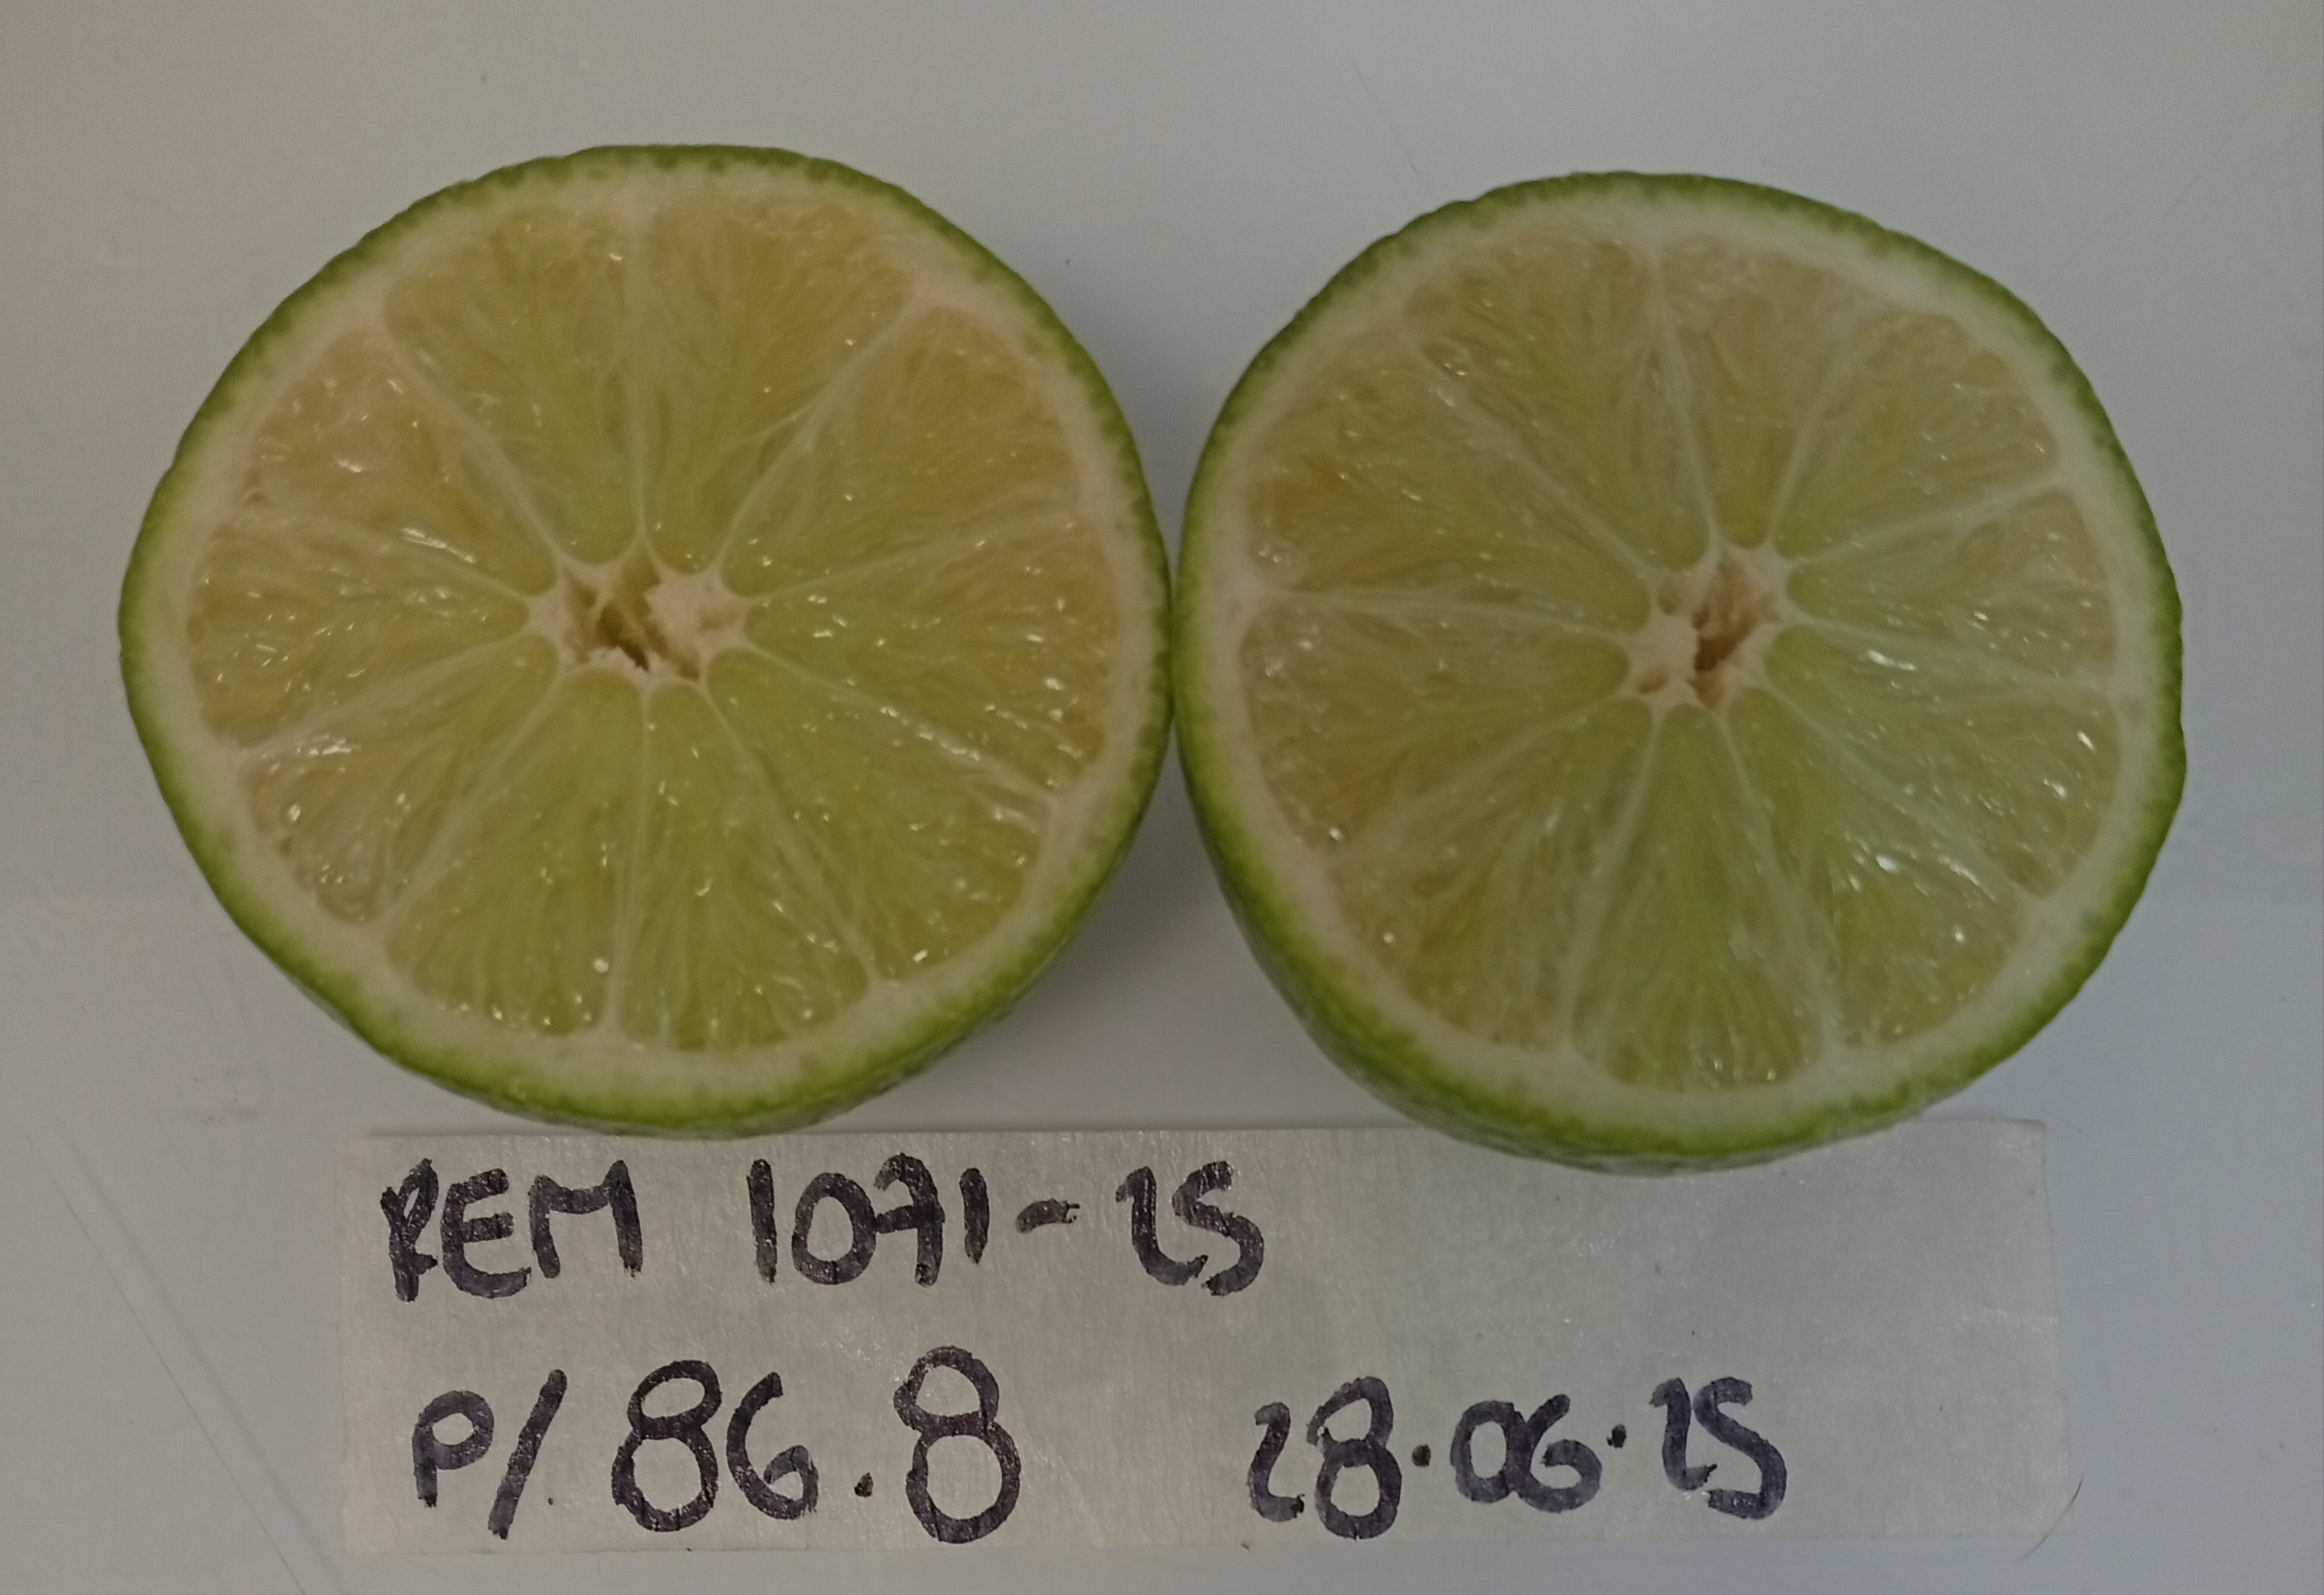 REM 1071-25
P/ 86.8 28.06.25